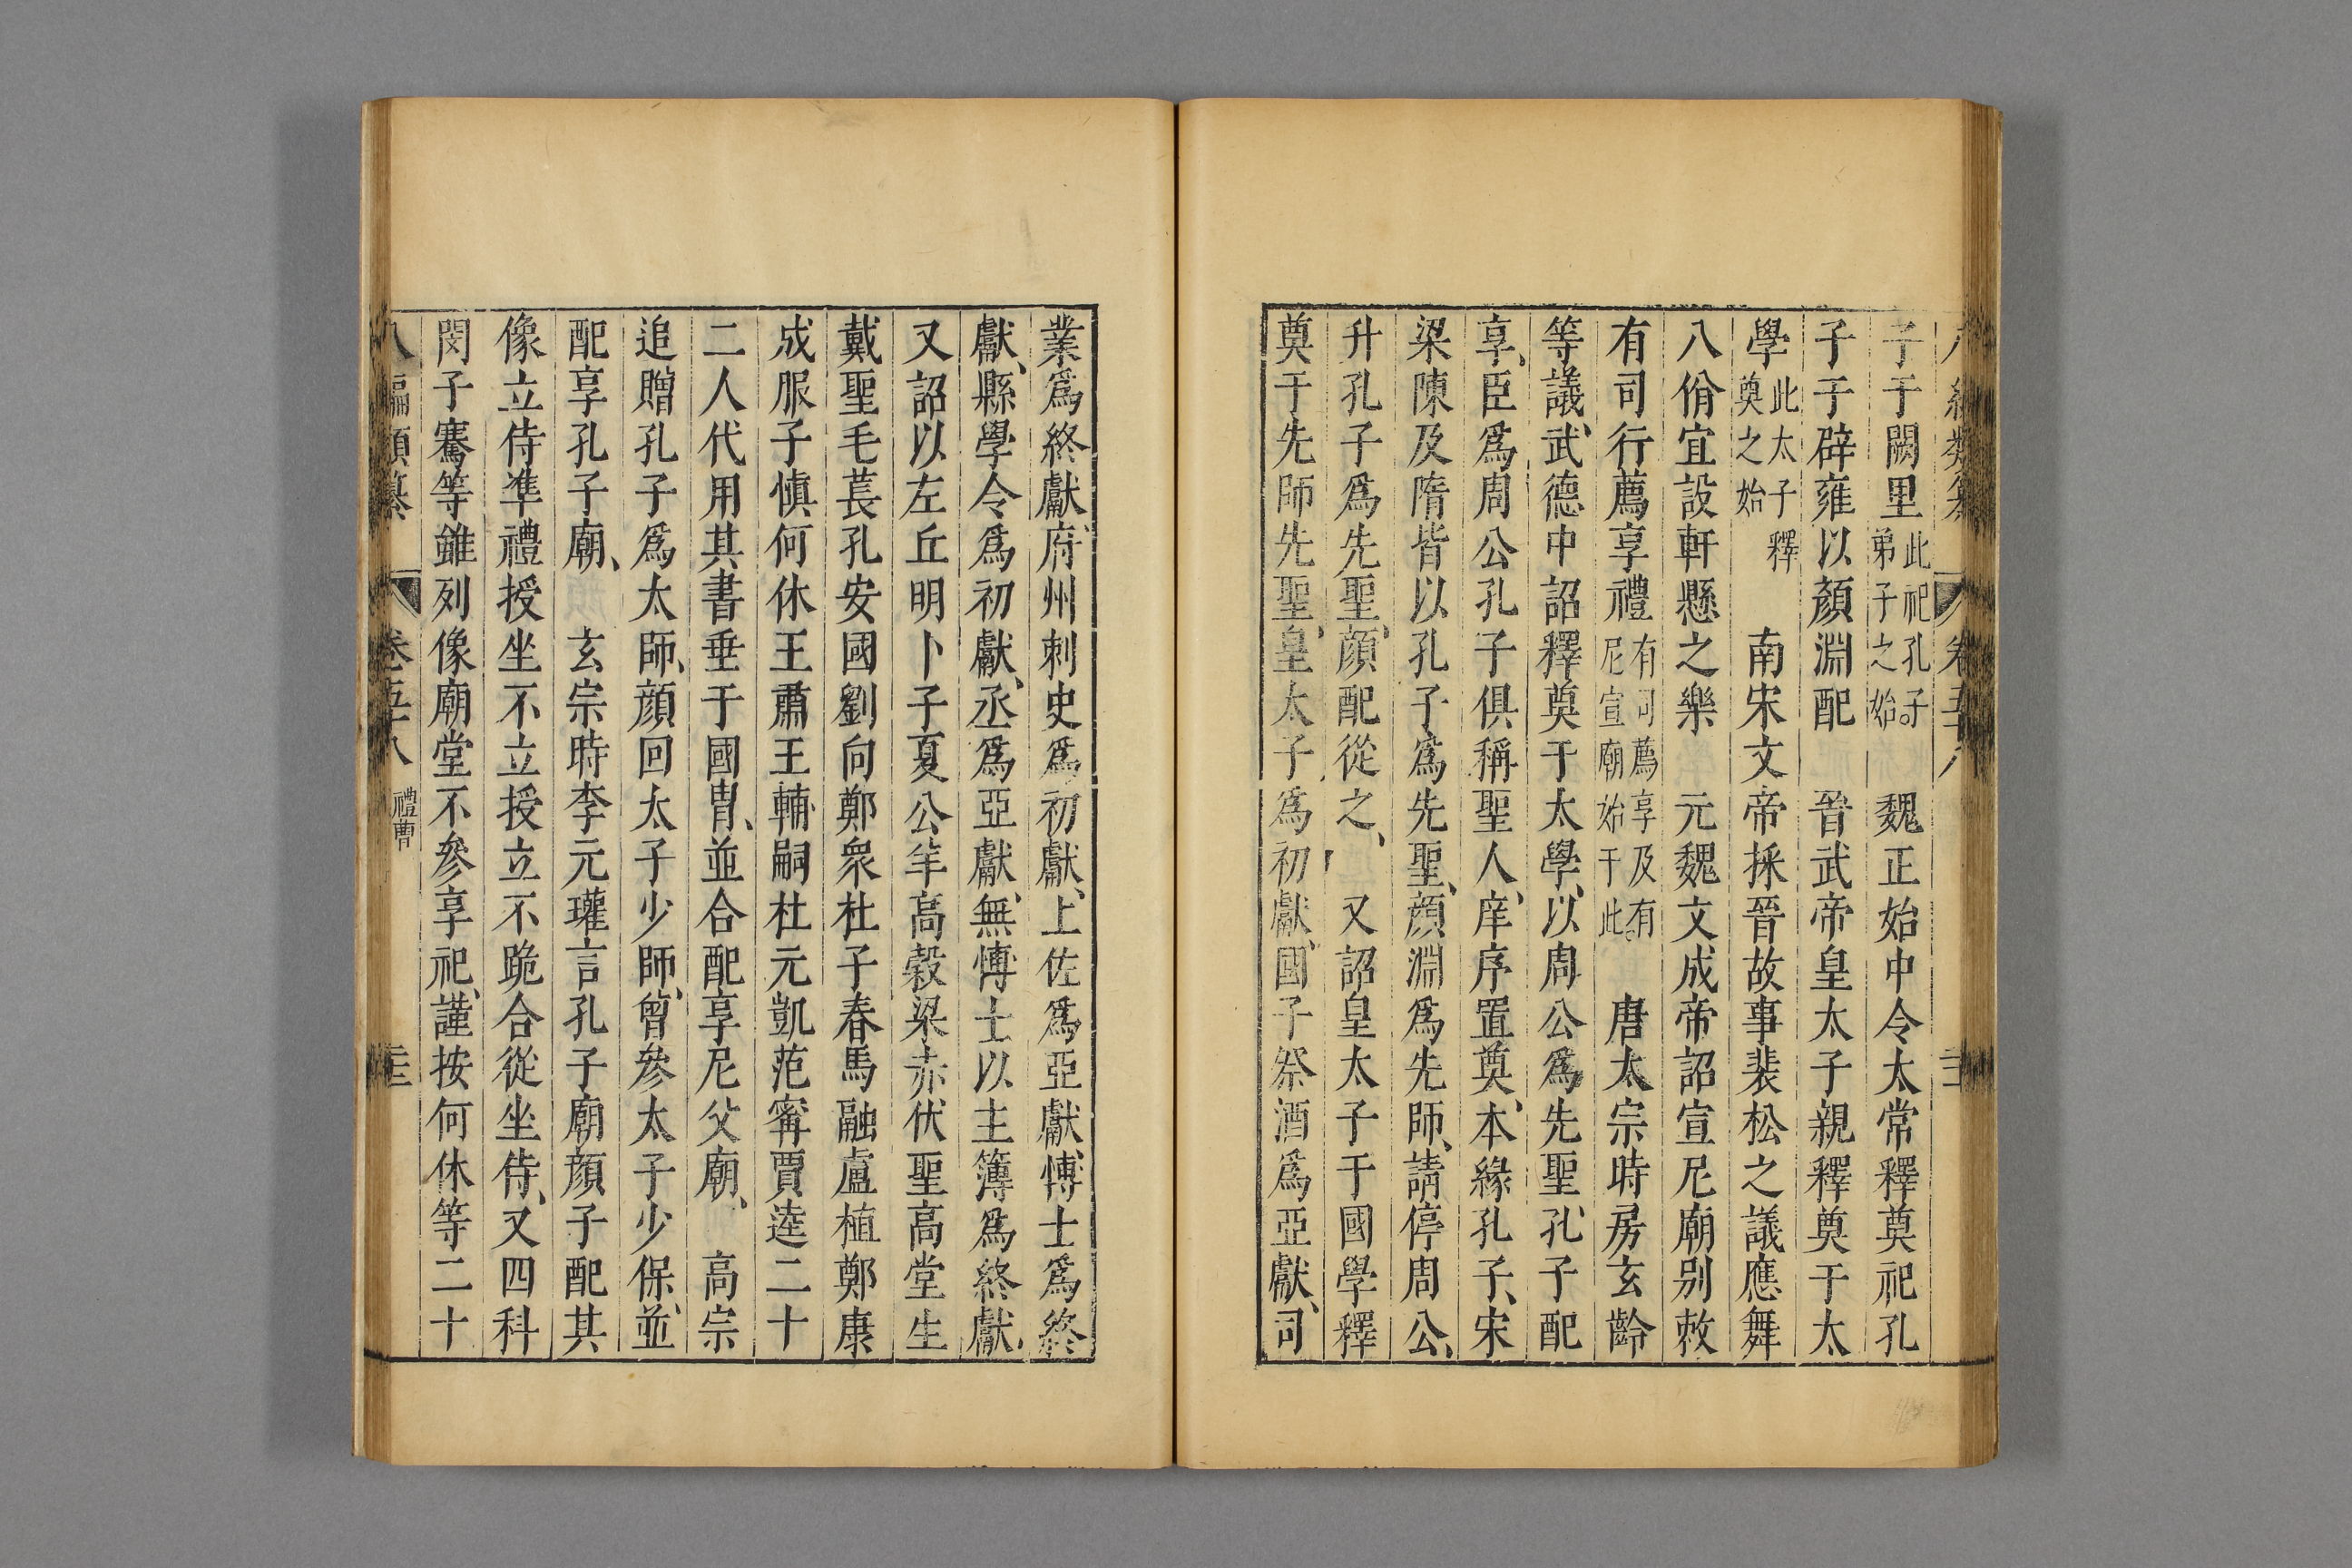 子于闕里此祀孔子弟子之始　魏正始中令太常釋奠祀孔
子于辟雍以顏淵配　晉武帝皇太子親釋奠于太
學此太子釋奠之始　南宋文帝採晉故事裴松之議應舞
八佾宜設軒懸之樂　元魏文成帝詔宣尼廟别敕
有司行薦享禮有司薦享及有尼宣廟始于此　唐太宗時房玄齡
等議武德中詔釋奠于太學、以周公爲先聖孔子配
享、臣爲周公孔子俱稱聖人、庠序置奠、本緣孔子、宋
梁陳及隋皆以孔子爲先聖、顏淵爲先師、請停周公、
升孔子爲先聖、顏配從之、　又詔皇太子于國學釋
奠于先師先聖、皇太子爲初獻、國子祭酒爲亞獻、司
業爲終獻府州刺史爲初獻、上佐爲亞獻、博士爲終
獻、縣學令爲初獻、丞爲亞獻、無博士以主簿爲終獻、
又詔以左丘明卜子夏公羊高穀梁赤伏聖高堂生
戴聖毛萇孔安國劉向鄭衆杜子春馬融盧植鄭康
成服子慎何休王肅王輔嗣杜元凱范甯賈逵二十
二人代用其書垂于國胄、並合配享尼父廟、　高宗
追贈孔子爲太師、顏回太子少師、曾參太子少保、並
配享孔子廟、　玄宗時李元瓘言孔子廟顏子配其
像立侍準禮授坐不立授立不跪合從坐侍、又四科
閔子騫等雖列像廟堂不參享祀、謹按何休等二十
八編類纂　卷五十八　禮曹　二十三